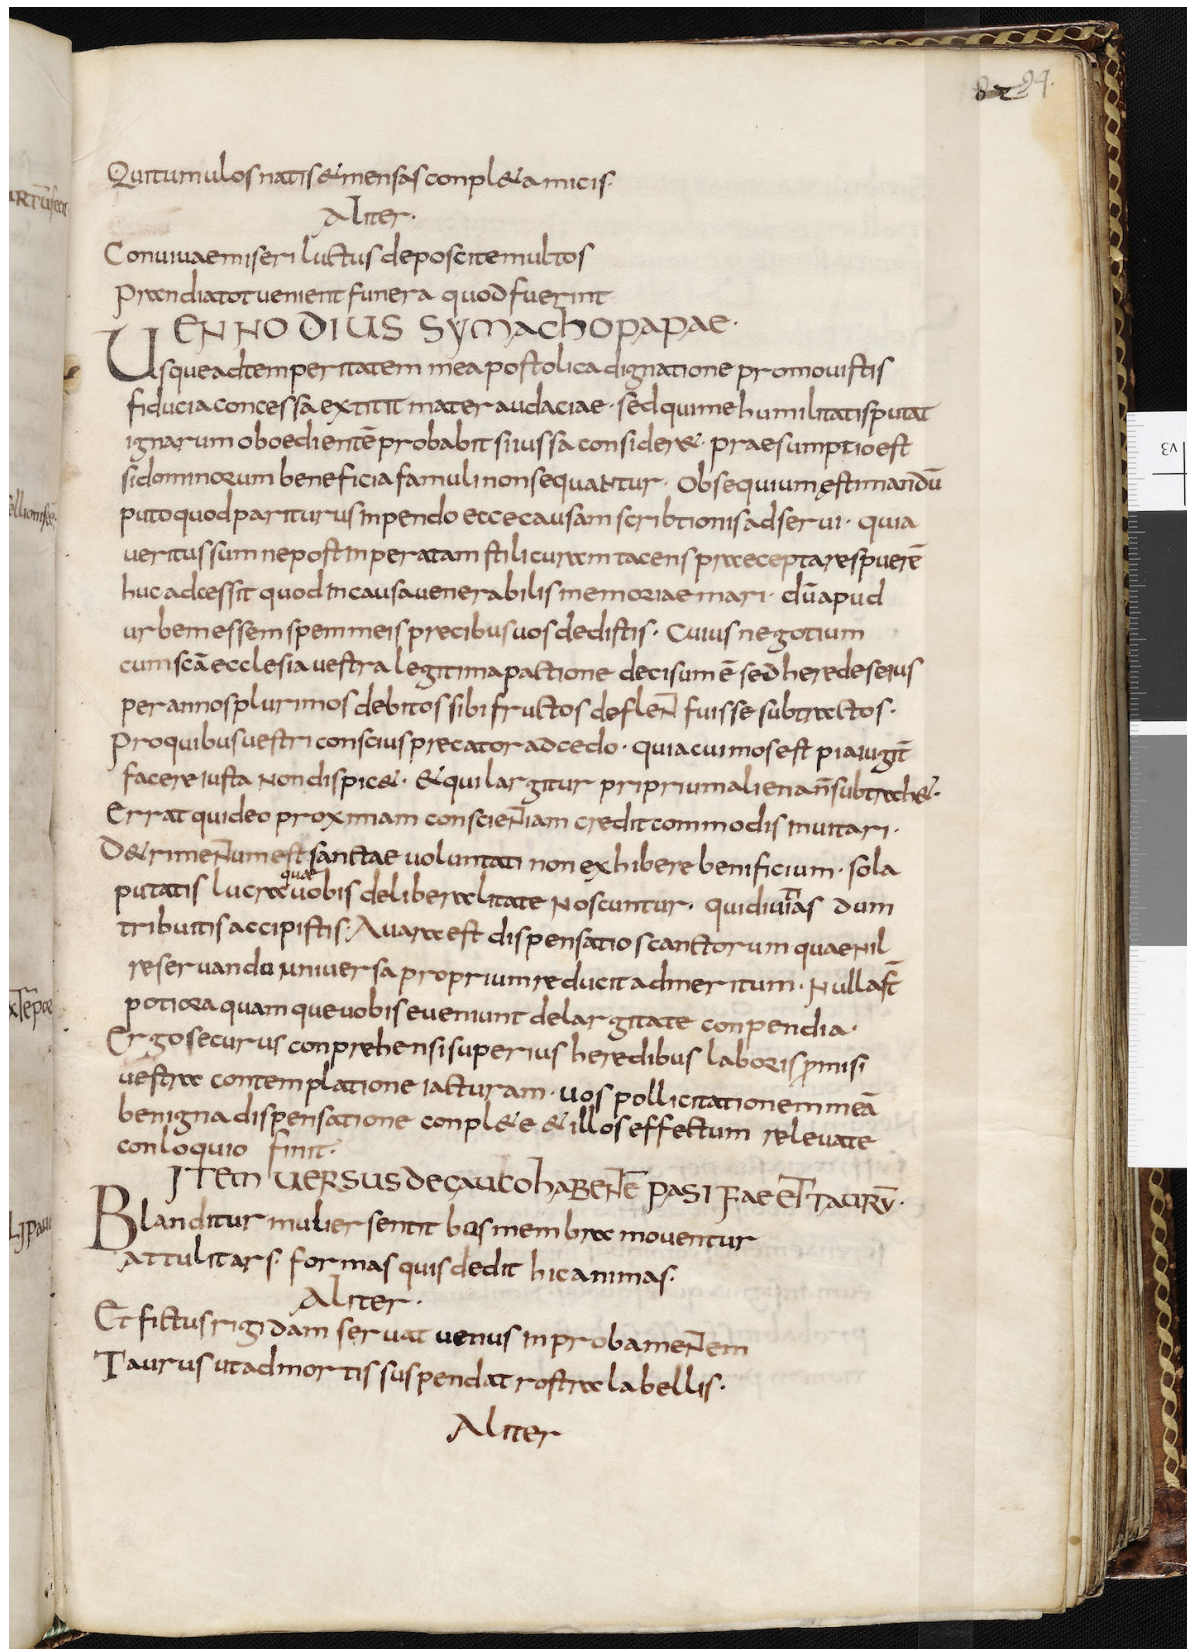 82 94.
Quitumulos natis & mensas conpl& amicis.
Aliter.
Conuiuae miseri luctus deposcite multos
Prandia tot uenient funera quod fuerint
ENNODIUS SYMACHO PAPAE.
Usque ad temperitatem me apostolica dignatione promouistis
fiducia concessa extitit mater audaciae. sed qui me humilitatis putat
ignarum oboedientē probabit si iussa consider&. praesumptio est
si dominorum beneficia famuli non sequantur. Obsequium ęstimandū
puto quod pariturus inpendo ecce causam scribtionis adserui. quia
ueritus sum ne post inperatam stili curam tacens praecepta respuerē
huc adcessit quod in causa uenerabilis memoriae mari. dū apud
urbem essem spem meis precibus uos dedistis. Cuius negotium
cum scā ecclesia uestra legitima pactione decisum ē sed heredes eius
per annos plurimos debitos sibi fructos deflent fuisse subtractos.
Pro quibus uestri conscius precator adcedo. quia cui mos est pia iugit̄
facere iusta non dispic&. & qui largitur priprium aliena n̄ subtrah&.
Errat qui deo proximam conscientiam credit commodis inuitari.
D&rimentum est sanctae uoluntati non exhibere benificium. sola
putatis lucra quae uobis de liberalitate noscuntur. qui diuitias dum
tribuitis accipistis. Auara est dispensatio scanctorum quae nil
reseruando uniuersa proprium reducit ad meritum. Nulla st̄
potiora quam que uobis eueniunt de largitate conpendia.
Ergo securus conprehensi superius heredibus laboris p̄misi
uestra contemplatione iacturam. uos pollicitationem meā
benigna dispensatione conpl&e & illos effectum releuate
conloquio finit.
ITEM UERSUS DE CAUCO HABENTE PASIFAE ET TAURŪ.
Blanditur mulier sentit bos membra mouentur
attulit ars. formas quis dedit hic animas.
Aliter.
Et fictus rigidam seruat uenus inproba mentem
Taurus ut admortis suspendat rostra labellis.
Aliter